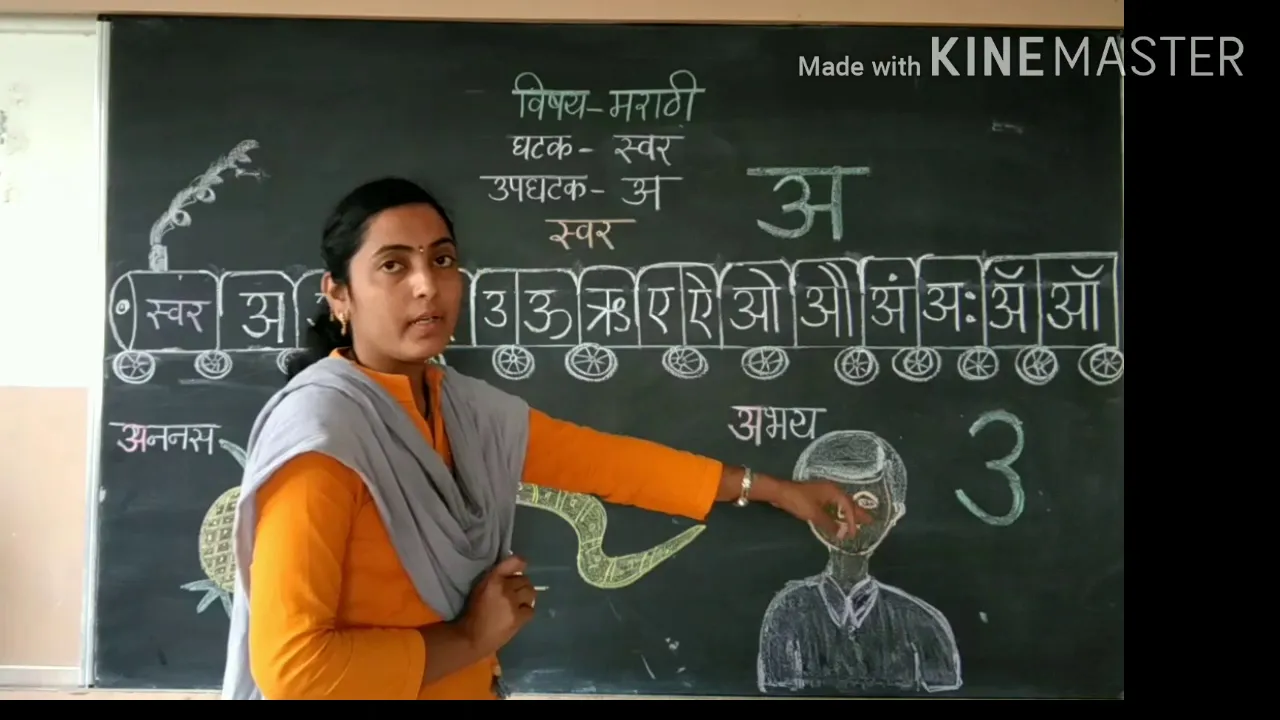 Made with KINEMASTER
विषय - मराठी
घटक - स्वर
उपघटक - अ
स्वर
अ
स्वर अ उ ऊ ऋ ए ऐ ओ औ अं अः ॲ ऑ
अननस
अभय
3